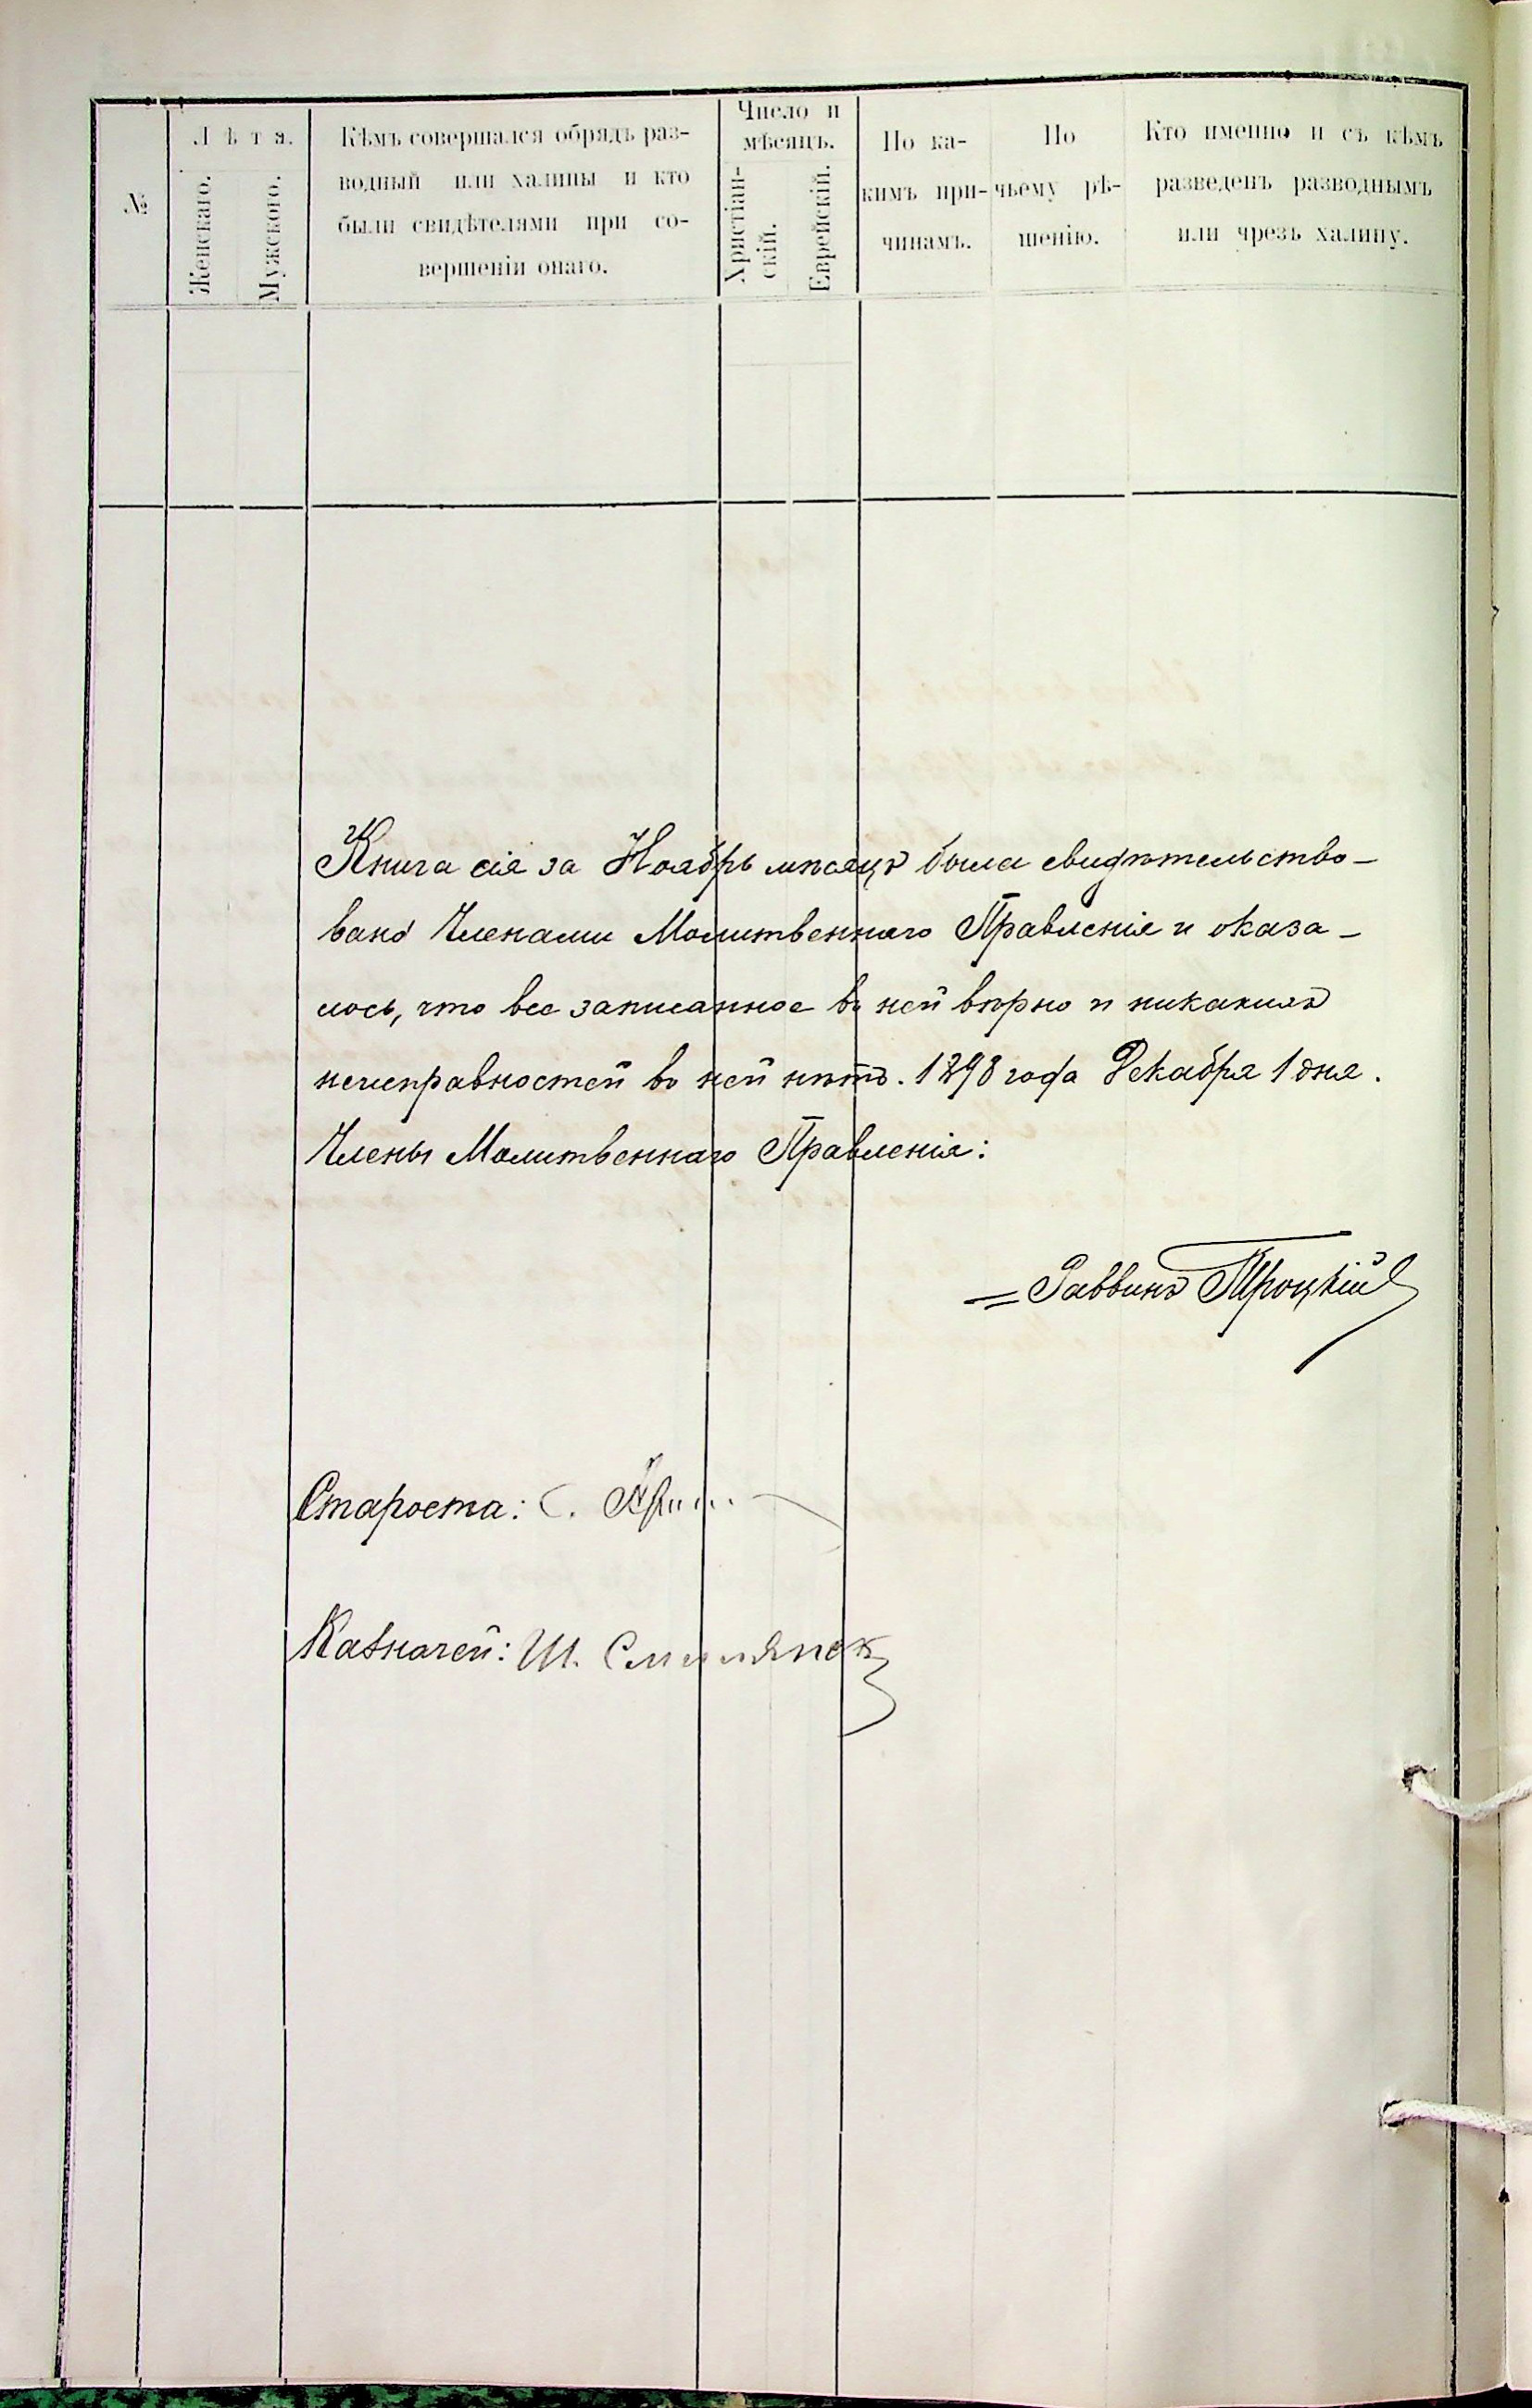 №
Лѣта.
Женскаго.
Мужского.
Кѣмъ совершался обрядъ раз-
водный или халицы и кто
были свидѣтелями при со-
вершеніи онаго.
Число и
мѣсяцъ.
Христіан-
скій.
Еврейскій.
По ка-
кимъ при-
чинамъ.
По
чьему рѣ-
шенію.
Кто именно и съ кѣмъ
разведенъ разводнымъ
или чрезъ халицу.
Книга сія за Ноябрь мѣсяцъ была свидѣтельство-
вана Членами Молитвеннаго Правленія и оказа-
лось, что все записанное въ ней вѣрно и никакихъ
неисправностей въ ней нѣтъ. 1898 года Декабря 1 дня.
Члены Молитвеннаго Правленія:
Раввинъ Троцкій
Староста: С.
Казначей: Ш.